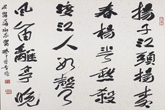 揚子江頭楊柳
春楊花愁殺
渡江人數聲
風笛離亭晚